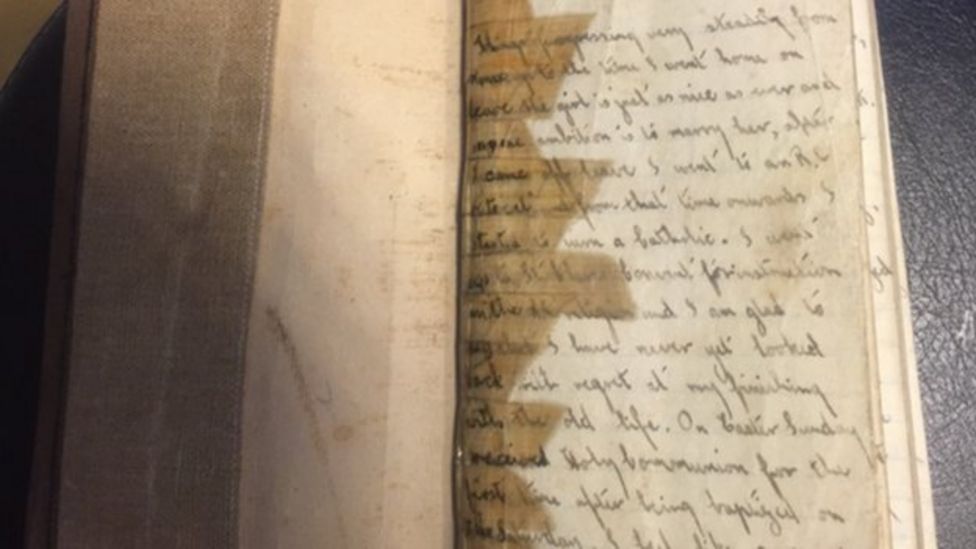 Things progressing very steadily from
up to the time I went home on
leave the girl is just as nice as ever and
ambition is to marry her, after
I came off leave I went to an R.C
from that time onwards I
to turn a Catholic. I went
Convent for instruction
in the and I am glad to
I have never yet looked
back with regret at my finishing
with the old life. On Easter Sunday
received Holy Communion for the
first time after being baptized on
the Saturday. I feel like